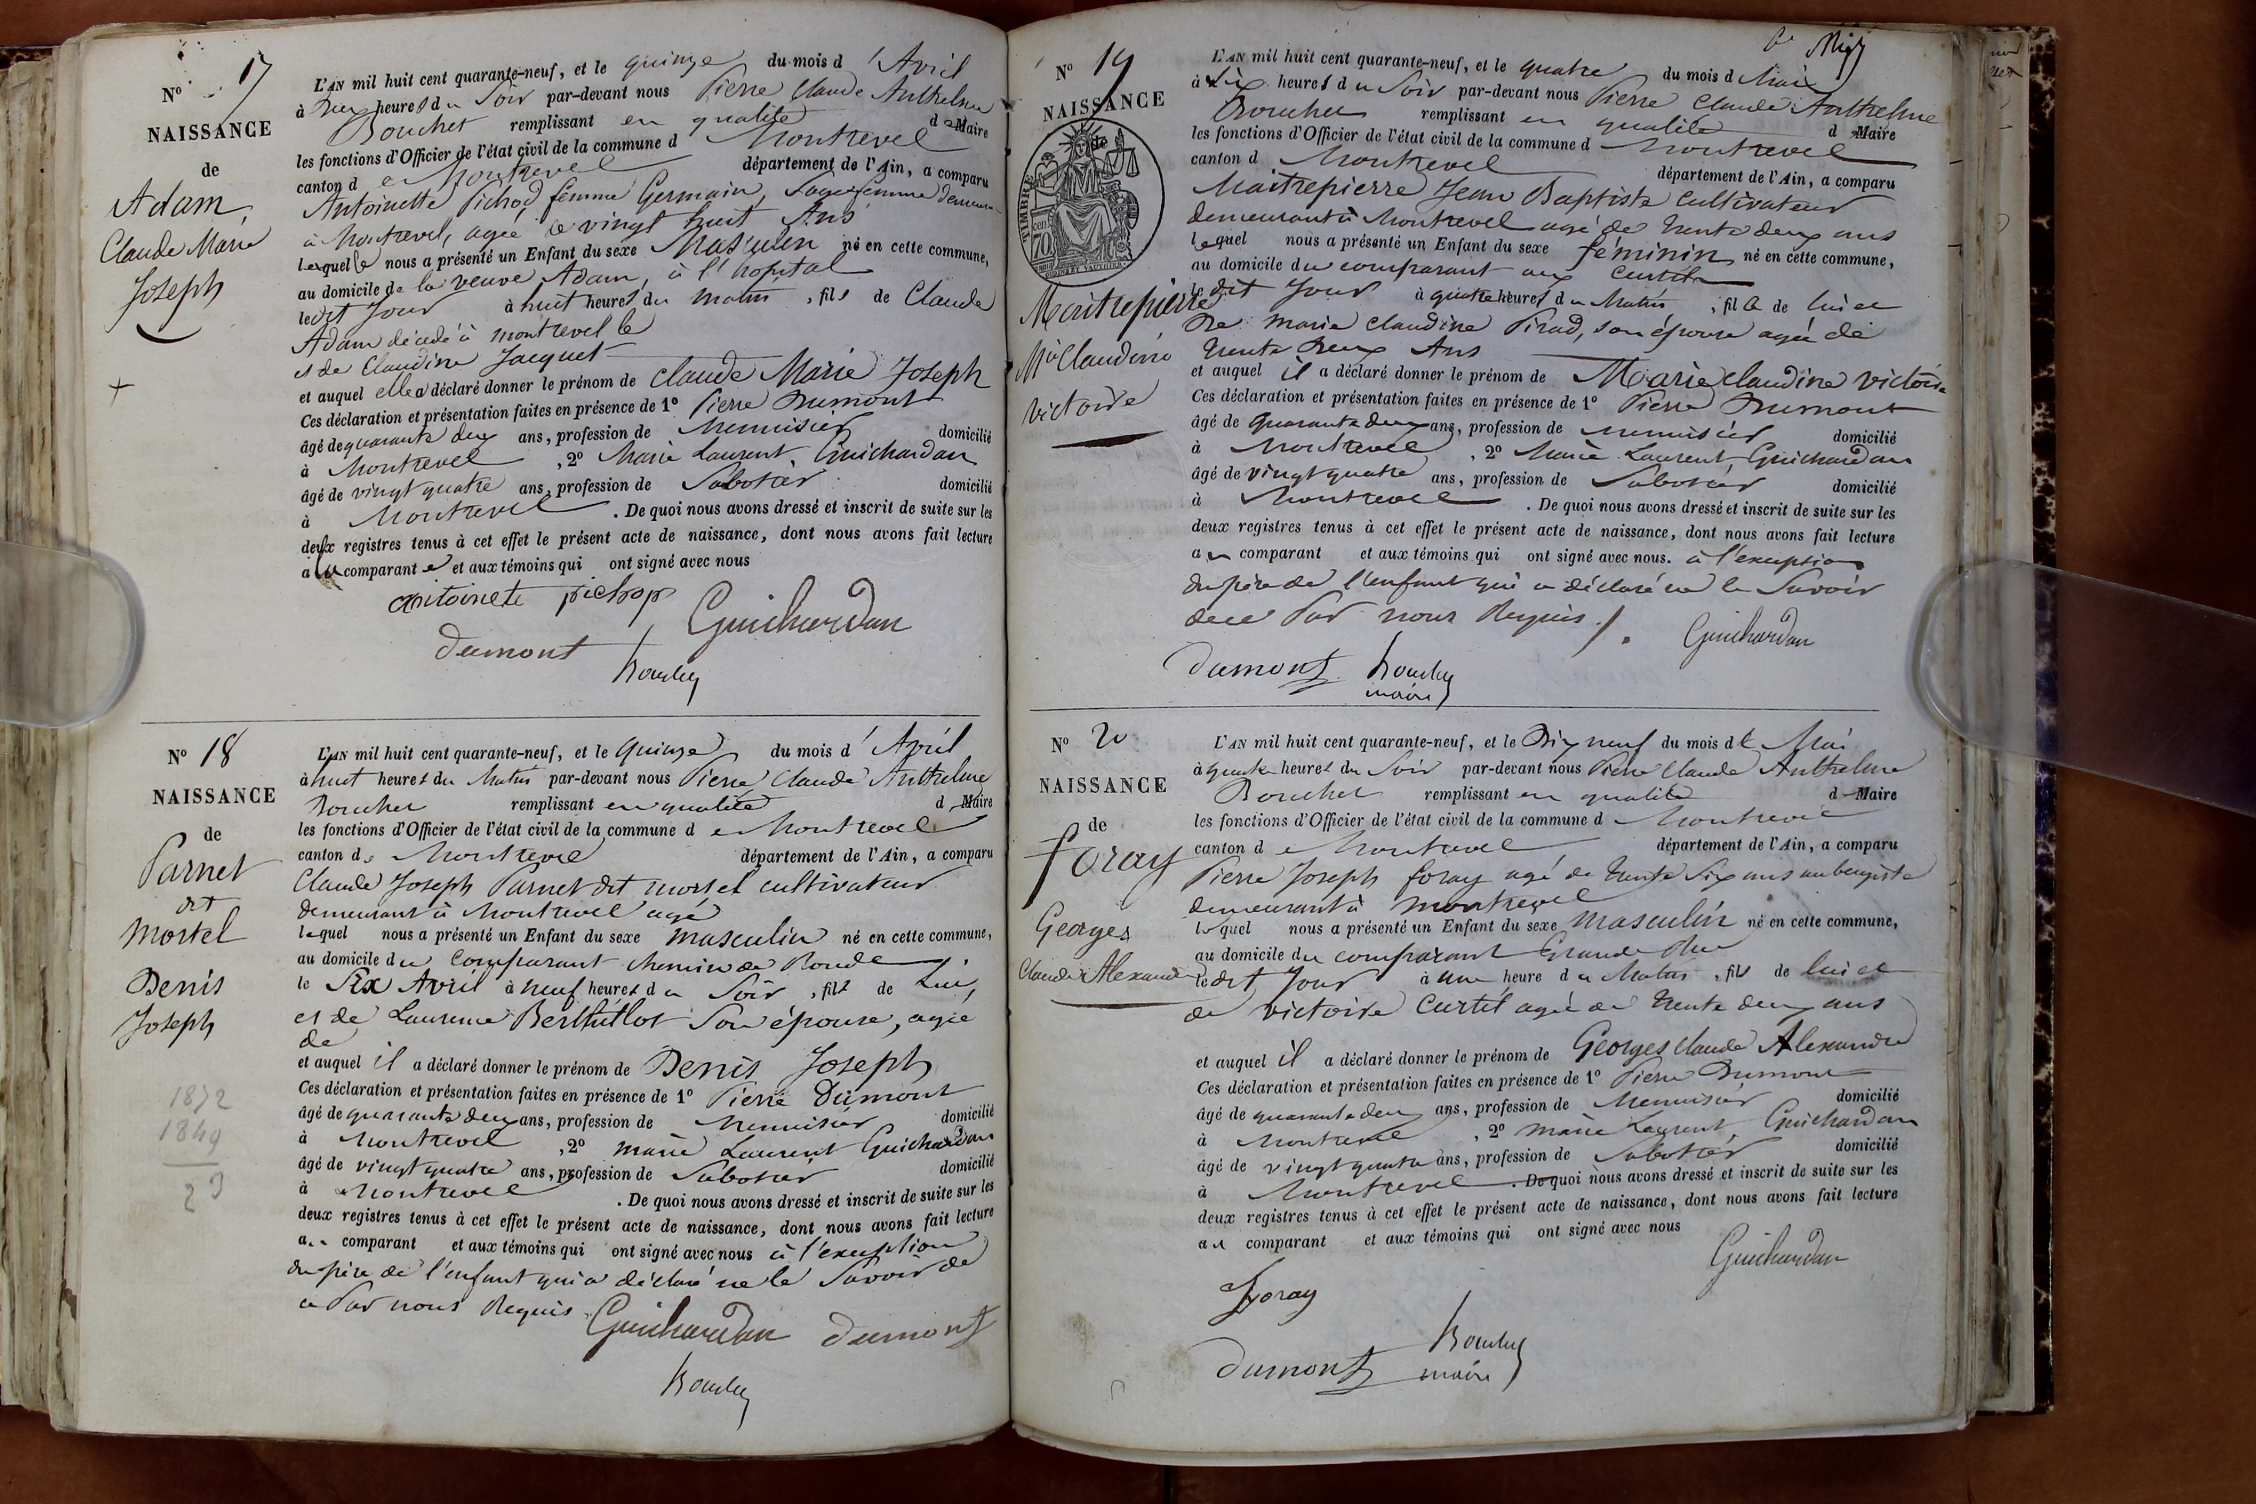 N° 17
NAISSANCE
de
Adam,
Claude Marie
Joseph
L'AN mil huit cent quarante-neuf, et le quinze du mois d'Avril
à heures du Soir par-devant nous Pierre Claude Anthelme
Bouchet remplissant en qualité d Maire
les fonctions d'Officier de l'état civil de la commune d Montrevel
canton de Montrevel département de l'Ain, a comparu
Antoinette Pichod, femme Germain, Sage femme demeurant
à Montrevel, agée de vingt huit Ans
laquelle nous a présenté un Enfant du sexe Masculin né en cette commune,
au domicile de la veuve Adam, à l'hopital
ledit Jour à huit heures du matin, fils de Claude
Adam décédé à montrevel le
et de Claudine Jacquet
et auquel elle a déclaré donner le prénom de Claude Marie Joseph
Ces déclaration et présentation faites en présence de 1° Pierre Dumont
âgé de quarante deux ans, profession de Menuisier domicilié
à Montrevel, 2° Marie Laurent Guichardan
âgé de vingt quatre ans, profession de Sabotier domicilié
à Montrevel. De quoi nous avons dressé et inscrit de suite sur les
deux registres tenus à cet effet le présent acte de naissance, dont nous avons fait lecture
a la comparante et aux témoins qui ont signé avec nous
antoinete pichop Guichardan
dumont
Bouchet
N° 18
NAISSANCE
de
Parnet
dit
Mortel
Denis
Joseph
1872
1849
23
L'AN mil huit cent quarante-neuf, et le quinze du mois d'Avril
à huit heures du Matin par-devant nous Pierre Claude Anthelme
Bouchet remplissant en qualité d Maire
les fonctions d'Officier de l'état civil de la commune de Montrevel
canton de Montrevel département de l'Ain, a comparu
Claude Joseph Parnet dit mortel cultivateur
demeurant à Montrevel agé
lequel nous a présenté un Enfant du sexe masculin né en cette commune,
au domicile du Comparant chemin de Ronde
le Six Avril à neuf heures du Soir, fils de Lui,
et de Laurence Berthillot Son épouse, agée
de
et auquel il a déclaré donner le prénom de Denis Joseph
Ces déclaration et présentation faites en présence de 1° Pierre Dumont
âgé de quarante deux ans, profession de Menuisier domicilié
à Montrevel, 2° marie Laurent Guichardan
âgé de vingt quatre ans, profession de Sabotier domicilié
à Montrevel. De quoi nous avons dressé et inscrit de suite sur les
deux registres tenus à cet effet le présent acte de naissance, dont nous avons fait lecture
au comparant et aux témoins qui ont signé avec nous à l'exception
du père de l'enfant qui a déclaré ne le Savoir de
ce Par nous Requis Guichardan dumont
Bouchet
N° 19
NAISSANCE
de
TIMBRE
70
Maitrepierre
Mie Claudine
victoire
L'AN mil huit cent quarante-neuf, et le quatre du mois d Mai
à Six heures du Soir par-devant nous Pierre Claude Anthelme
Bouchet remplissant en qualité d Maire
les fonctions d'Officier de l'état civil de la commune d Montrevel
canton d Montrevel département de l'Ain, a comparu
Maitrepierre Jean Baptiste Cultivateur
demeurant à Montrevel agé de trente deux ans
lequel nous a présenté un Enfant du sexe féminin né en cette commune,
au domicile du comparant aux Curtils
ledit Jour à quatre heures du Matin, fille de lui et
de marie Claudine Pirad, son épouse agée de
trente deux Ans
et auquel il a déclaré donner le prénom de Marie Claudine victoire
Ces déclaration et présentation faites en présence de 1° Pierre Dumont
âgé de quarante deux ans, profession de menuisier domicilié
à Montrevel, 2° Marie Laurent Guichardan
âgé de vingt quatre ans, profession de Sabotier domicilié
à Montrevel. De quoi nous avons dressé et inscrit de suite sur les
deux registres tenus à cet effet le présent acte de naissance, dont nous avons fait lecture
au comparant et aux témoins qui ont signé avec nous. à l'exception
du père de l'enfant qui a déclaré ne le Savoir
de ce Par nous Requis Guichardan
dumont Bouchet
maire
N° 20
NAISSANCE
de
foray
Georges
Claude Alexandre
L'AN mil huit cent quarante-neuf, et le Dix neuf du mois de Mai
à quatre heures du Soir par-devant nous Pierre Claude Anthelme
Bouchet remplissant en qualité d Maire
les fonctions d'Officier de l'état civil de la commune d Montrevel
canton de Montrevel département de l'Ain, a comparu
Pierre Joseph foray agé de trente Six ans aubergiste
demeurant à montrevel
lequel nous a présenté un Enfant du sexe masculin né en cette commune,
au domicile du comparant Grande Rue
ledit Jour à une heure du Matin, fils de lui et
de victoire Curtil agée de trente deux ans
et auquel il a déclaré donner le prénom de Georges Claude Alexandre
Ces déclaration et présentation faites en présence de 1° Pierre Dumont
âgé de quarante deux ans, profession de Menuisier domicilié
à Montrevel, 2° marie Laurent Guichardan
âgé de vingt quatre ans, profession de Sabotier domicilié
à Montrevel. De quoi nous avons dressé et inscrit de suite sur les
deux registres tenus à cet effet le présent acte de naissance, dont nous avons fait lecture
au comparant et aux témoins qui ont signé avec nous
Guichardan
foray
Bouchet
dumont maire